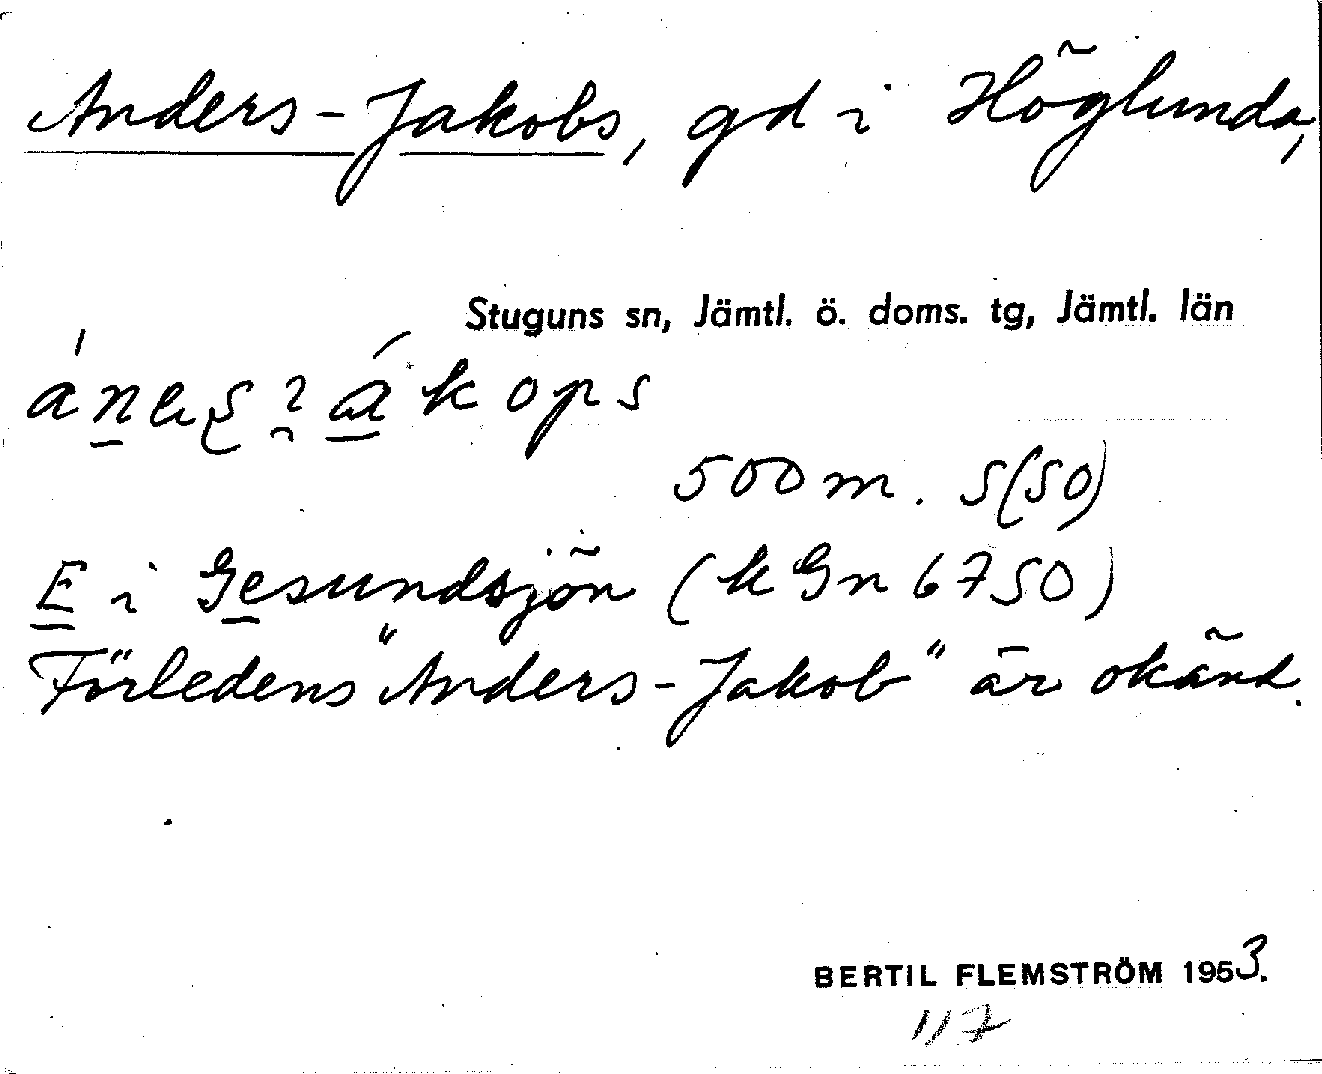 Anders-Jakobs, gd i Höglunda,
Stuguns sn, Jämtl. ö. doms. tg, Jämtl. län
500 m. S(SO)
E i Gesundsjön (kGn 6750)
Förledens "Anders-Jakob" är okänd.
BERTIL FLEMSTRÖM 1953.
117